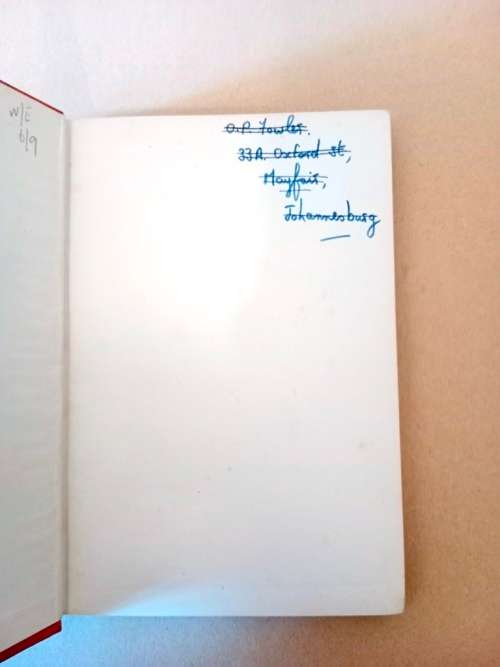 w/c
6/9
O.P. Fowler.
33A. Oxford St,
Mayfair,
Johannesburg